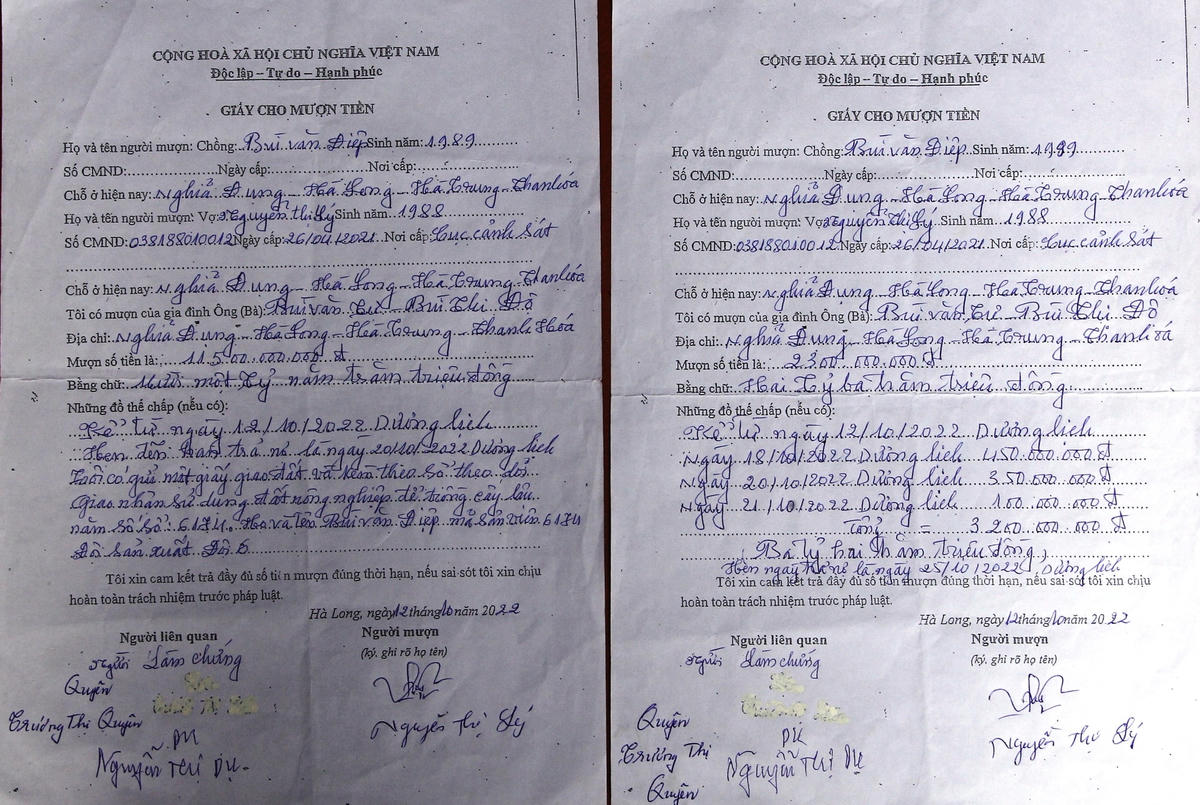 CỘNG HOÀ XÃ HỘI CHỦ NGHĨA VIỆT NAM
Độc lập – Tự do – Hạnh phúc
GIẤY CHO MƯỢN TIỀN
Họ và tên người mượn: Chồng: Bùi văn Điệp Sinh năm: 1989
Số CMND: Ngày cấp: Nơi cấp:
Chỗ ở hiện nay: Nghĩa Đụng - Hà Long - Hà Trung - Thanh hóa
Họ và tên người mượn: Vợ: Nguyễn Thị Lý Sinh năm 1988
Số CMND: 038188010012 Ngày cấp: 26/04/2021 Nơi cấp: Cục cảnh sát
Chỗ ở hiện nay: Nghĩa Đụng - Hà Long - Hà Trung - Thanh hóa
Tôi có mượn của gia đình Ông (Bà): Bùi văn Cư - Bùi Thị Đô
Địa chỉ: Nghĩa Đụng - Hà Long - Hà Trung - Thanh Hóa
Mượn số tiền là: 11.500.000.000 đ
Bằng chữ: Mười một tỷ năm trăm triệu đồng
Những đồ thế chấp (nếu có):
Kể từ ngày 12/10/2022 Dương lịch
Hẹn đến hạn trả nợ là ngày 20/10/2022 Dương lịch
Tôi có gửi một giấy giao đất và kèm theo sổ theo dõi
Giao nhận sử dụng đất nông nghiệp để trồng cây lâu
năm số sổ: 6174. Họ và tên Bùi văn Điệp mã sản viên 6174
Đô sản xuất Đội 6
Tôi xin cam kết trả đầy đủ số tiền mượn đúng thời hạn, nếu sai sót tôi xin chịu
hoàn toàn trách nhiệm trước pháp luật.
Hà Long, ngày 12 tháng 10 năm 2022
Người liên quan Người mượn
Người làm chứng (ký, ghi rõ họ tên)
Quyên
Trương Thị Quyên Nguyễn Thị Lý
DU
Nguyễn Thị Dụ

CỘNG HOÀ XÃ HỘI CHỦ NGHĨA VIỆT NAM
Độc lập – Tự do – Hạnh phúc
GIẤY CHO MƯỢN TIỀN
Họ và tên người mượn: Chồng: Bùi văn Điệp Sinh năm: 1989
Số CMND: Ngày cấp: Nơi cấp:
Chỗ ở hiện nay: Nghĩa Đụng - Hà Long - Hà Trung - Thanh hóa
Họ và tên người mượn: Vợ: Nguyễn Thị Lý Sinh năm: 1988
Số CMND: 038188010012 Ngày cấp: 26/04/2021 Nơi cấp: Cục cảnh sát
Chỗ ở hiện nay: Nghĩa Đụng - Hà Long - Hà Trung - Thanh hóa
Tôi có mượn của gia đình Ông (Bà): Bùi văn Cư - Bùi Thị Đô
Địa chỉ: Nghĩa Đụng - Hà Long - Hà Trung - Thanh hóa
Mượn số tiền là: 2300.000.000 đ
Bằng chữ: Hai tỷ ba trăm triệu đồng
Những đồ thế chấp (nếu có):
Kể từ ngày 12/10/2022 Dương lịch
Ngày 18/10/2022 Dương lịch 450.000.000 đ
Ngày 20/10/2022 Dương lịch 350.000.000 đ
Ngày 21/10/2022 Dương lịch 100.000.000 đ
Tổng = 3200.000.000 đ
(Ba tỷ hai trăm triệu đồng)
Hẹn ngày trả nợ là ngày 25/10/2022 Dương lịch
Tôi xin cam kết trả đầy đủ số tiền mượn đúng thời hạn, nếu sai sót tôi xin chịu
hoàn toàn trách nhiệm trước pháp luật.
Hà Long, ngày 12 tháng 10 năm 2022
Người liên quan Người mượn
Người làm chứng (ký, ghi rõ họ tên)
Quyên
DU
Trương Thị Nguyễn Thị Dụ Nguyễn Thị Lý
Quyên